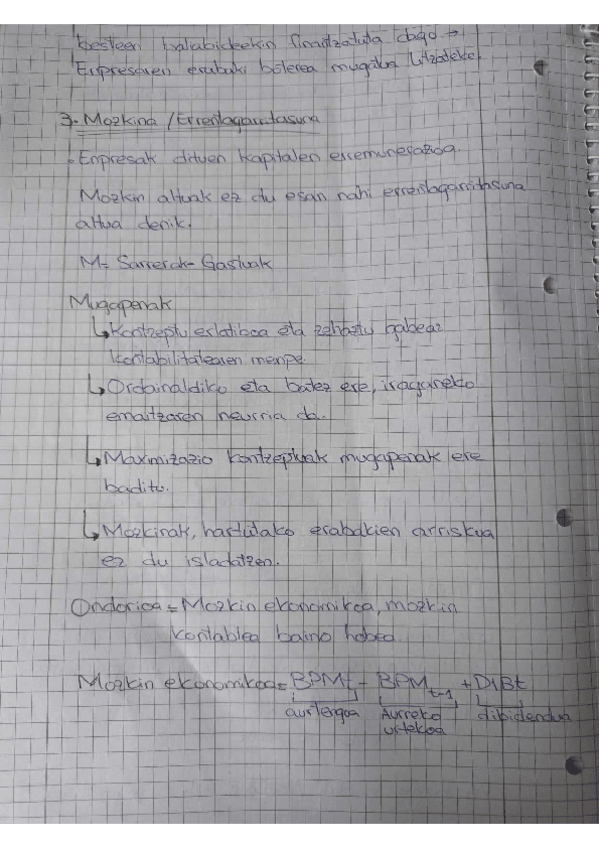 besteen baliabideekin finantzatuta dago →
Enpresaren erabaki boterea mugatua litzateke.
3- Mozkina / Errentagarritasuna
• Enpresak dituen kapitalen erremunerazioa.
Mozkin altuak ez du esan nahi errentagarritasuna
altua denik.
M= Sarrerak- Gastuak
Mugapenak
↳ Kontzeptu erlatiboa eta zehaztu gabea:
kontabilitatearen menpe.
↳ Ordainaldiko eta batez ere, iraganeko
emaitzaren neurria da.
↳ Maximizazio kontzeptuak mugapenak ere
baditu.
↳ Mozkinak, hartutako erabakien arriskua
ez du isladatzen.
Ondorioa = Mozkin ekonomikoa, mozkin
kontablea baino hobea.
Mozkin ekonomikoa = BPMt - BPM t-1 + DIBt
aurtengoa Aurreko urtekoa dibidendua